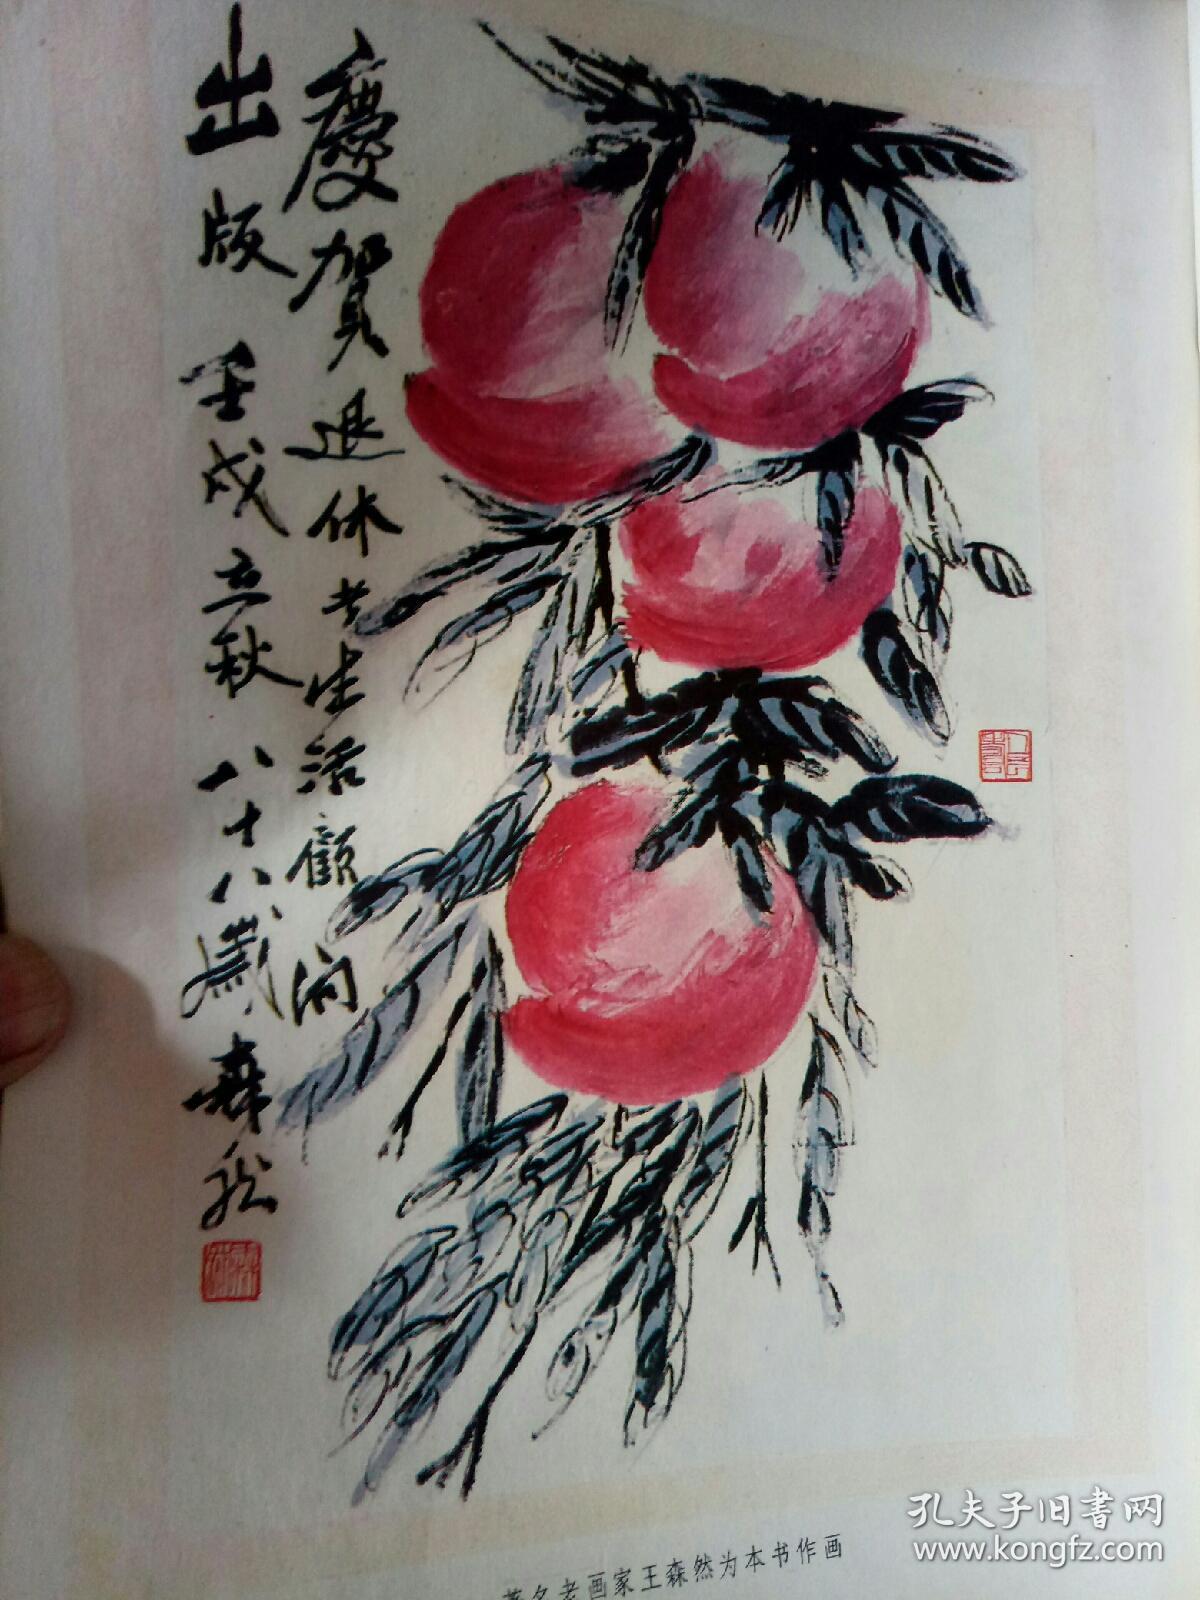 慶賀退休生活顧问
出版 壬戌立秋 八十八歲 森然
著名老画家王森然为本书作画
孔夫子旧书网
www.kongfz.com